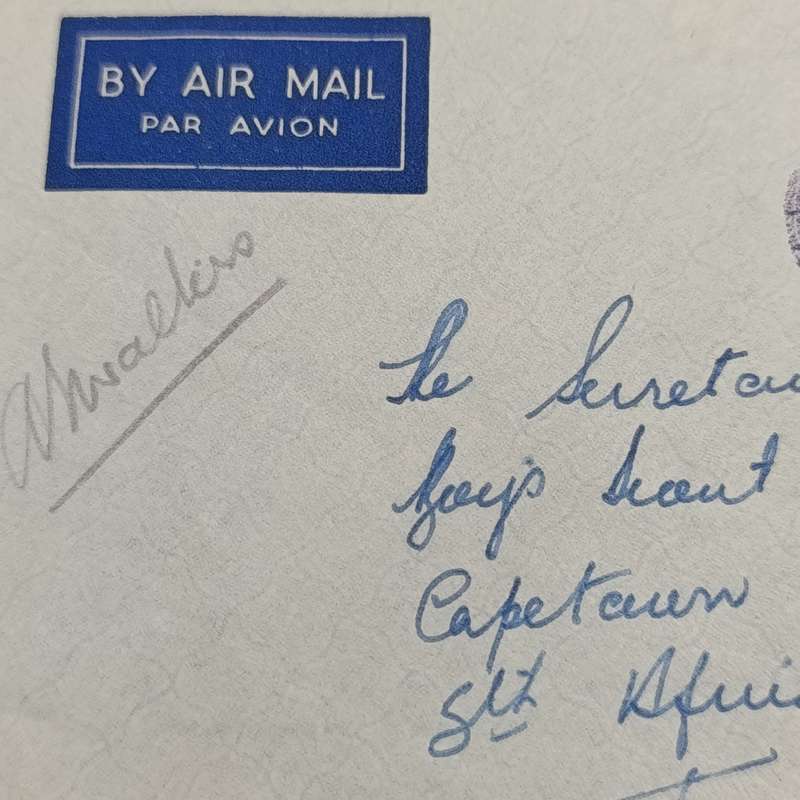 BY AIR MAIL
PAR AVION
The Secretar
Boys Scout
Capetown
Sth Afri